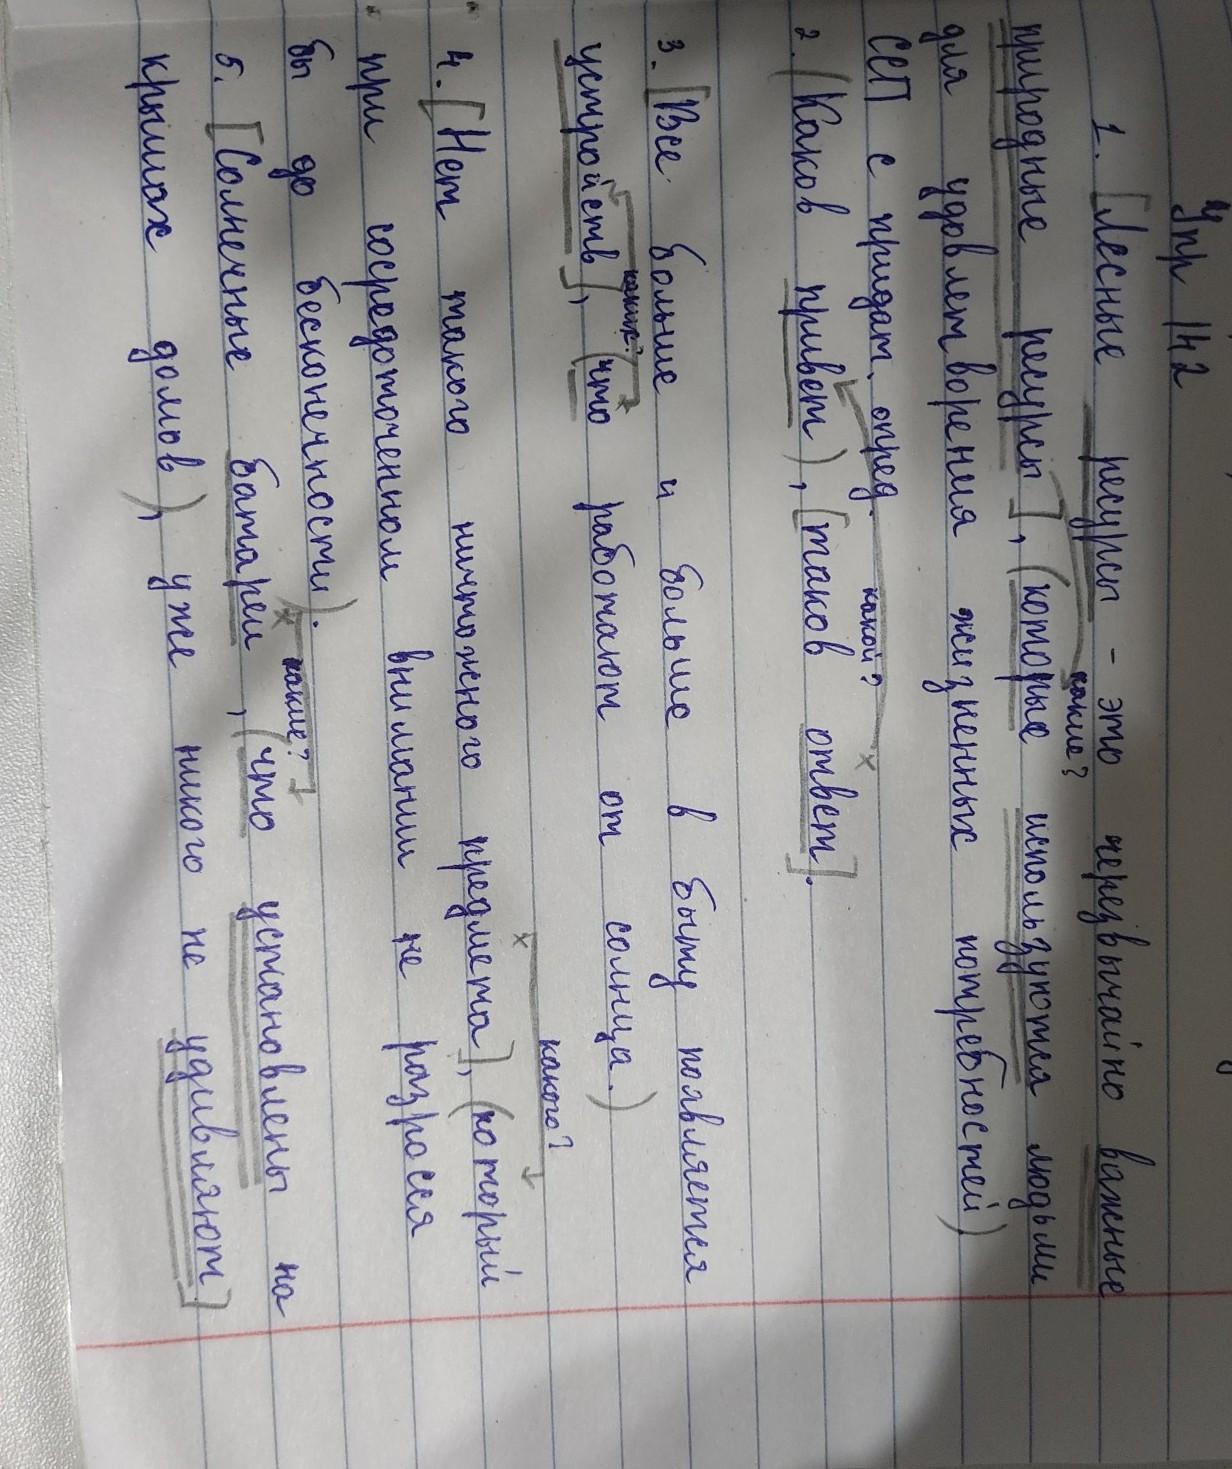 Упр 142
1. [Лесные ресурсы - это черезвычайно важные
какие?
природные ресурсы], (которые используются людьми
для удовлетворения жизненных потребностей)
СПП с придат. опред. какой?
2. (Каков привет), [таков ответ].
3. [Все больше и больше в быту появляется
какие?
устройств], (что работают от солнца.)
какого?
4. [Нет такого ничтожного предмета], (который
при сосредоточенном внимании не разросся
бы до бесконечности).
какие?
5. [Солнечные батареи, (что установлены на
крышах домов), уже никого не удивляют]